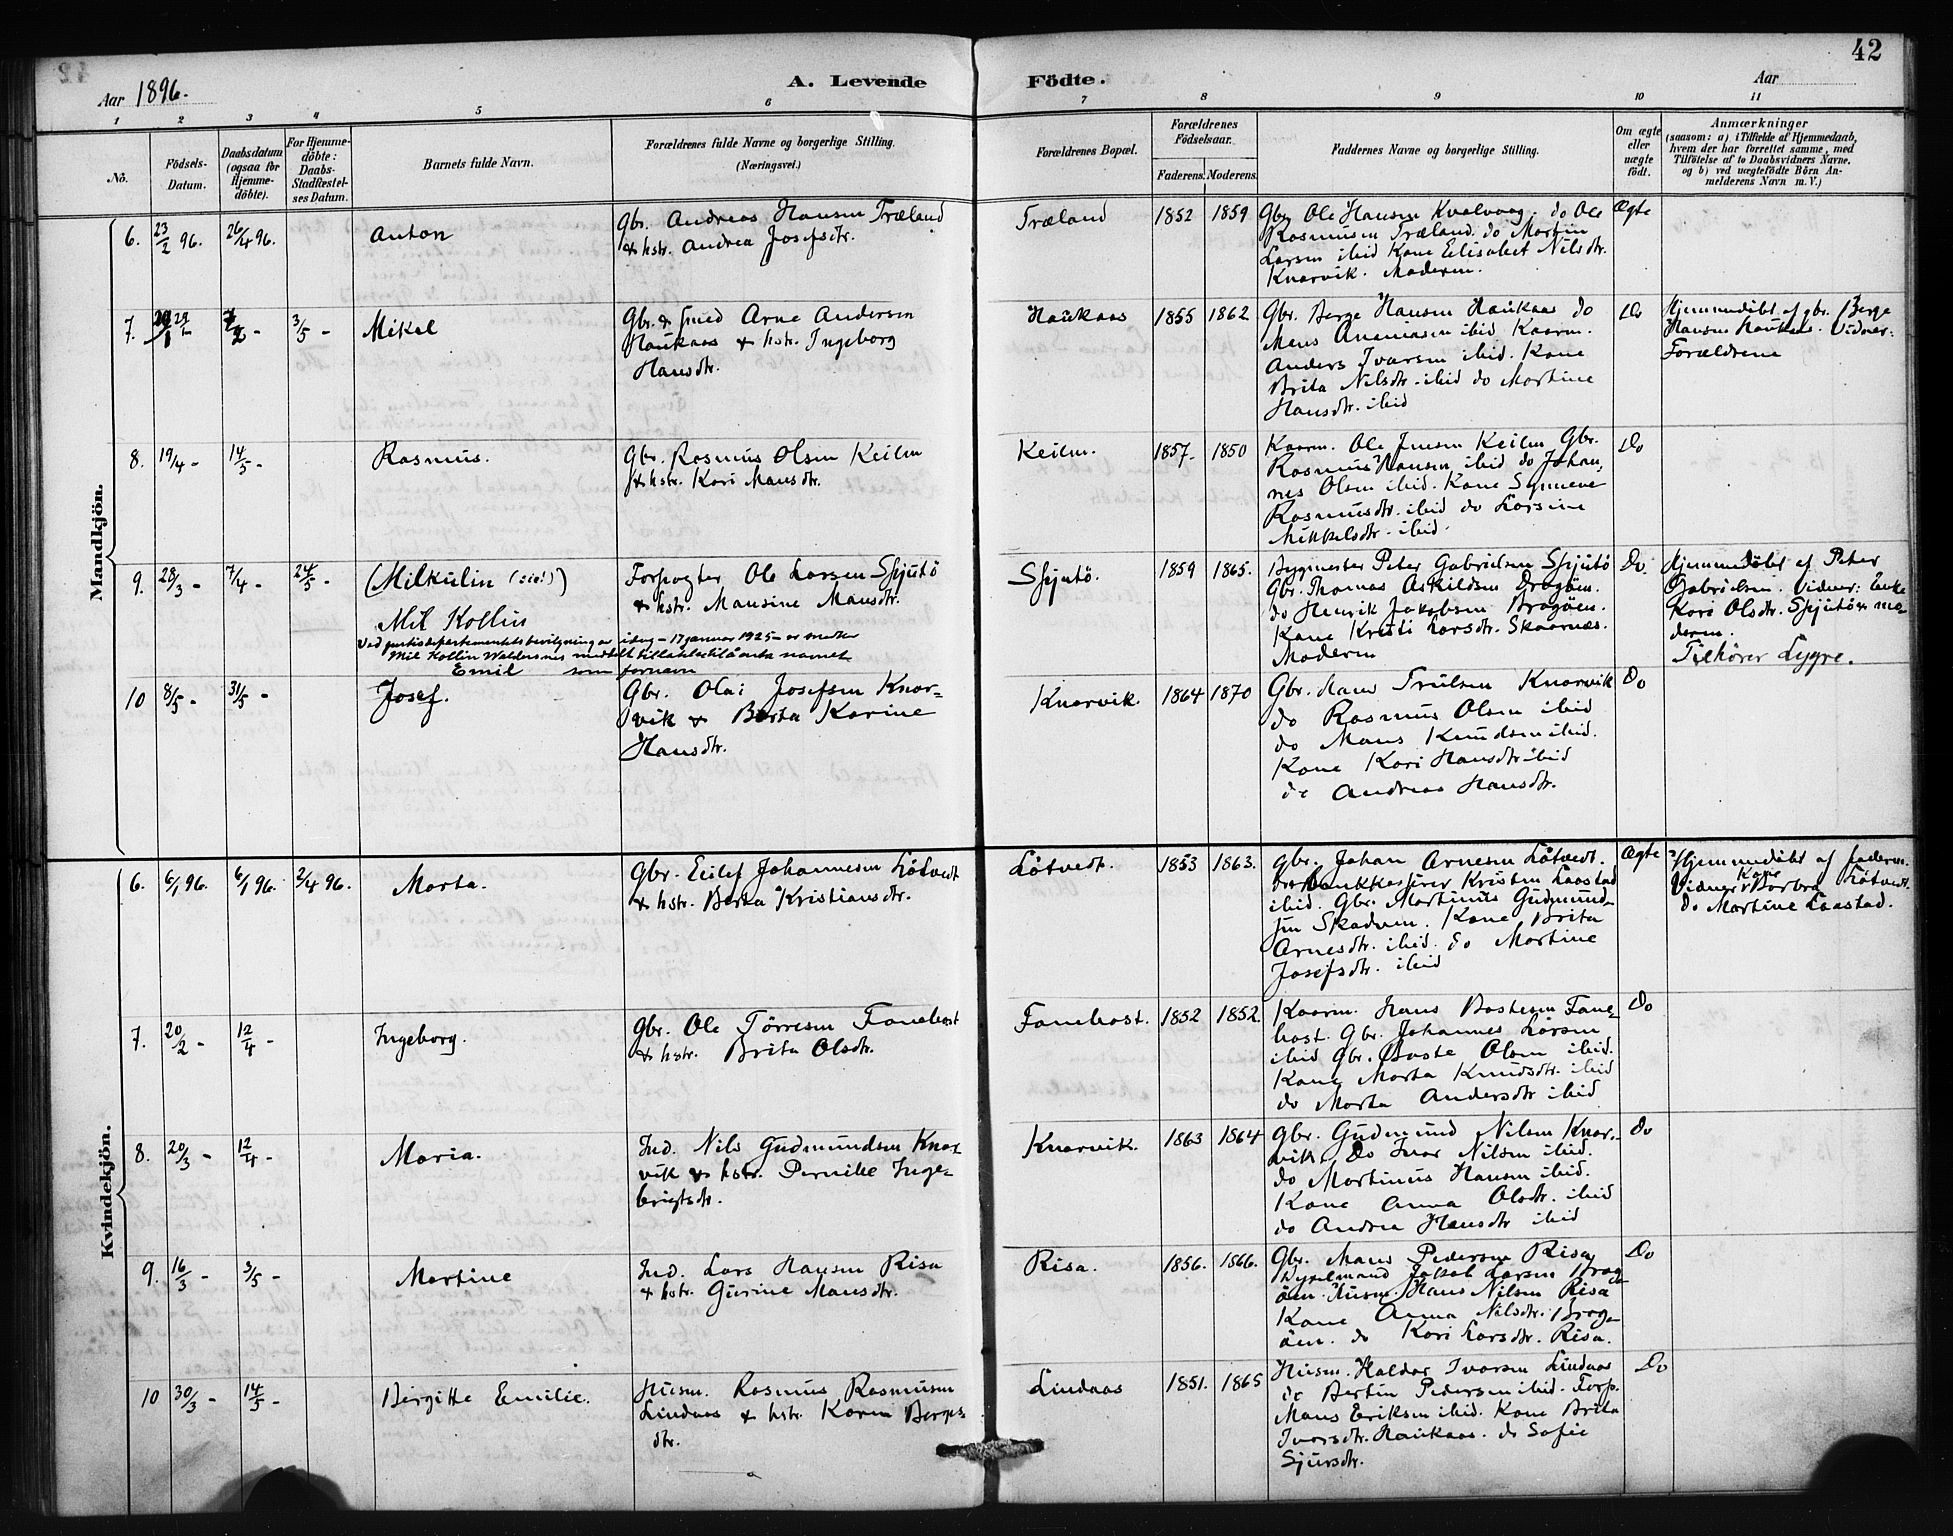 42
Aar 1896.
A. Levende Födte.
Aar
1 2 3 4 5 6 7 8 9 10 11
No.
Födsels-Datum.
Daabsdatum (ogsaa for Hjemme-döbte).
For Hjemme-döbte: Daabs-Stadfæstel-ses Datum.
Barnets fulde Navn.
Forældrenes fulde Navne og borgerlige Stilling.
(Næringsvei.)
Forældrenes Bopæl.
Forældrenes Födselsaar.
Faderens. Moderens.
Faddernes Navne og borgerlige Stilling.
Om ægte eller uægte födt.
Anmærkninger
(saasom: a) i Tilfælde af Hjemmedaab,
hvem der har forrettet samme, med
Tilföielse af to Daabsvidners Navne,
og b) ved uægtefödte Börn An-
melderens Navn m. V.)
Mandkjön.
6. 23/2 96. 26/4 96. Anton
Gbr. Andreas Hansen Træland
& hstr. Andrea Josefsdtr.
Træland 1852 1859
Gbr. Ole Hansen Kvalvaag. do Ole
Rasmusen Træland. do Martin
Larsen ibid Kone Elisabet Nilsdtr.
Knarvik. Moderen.
Ægte
7. 3/5 - Mikal
Gbr. & Smed Arne Andersen
Haukaas & hstr. Ingeborg
Hansdtr.
Haukaas 1855 1862
Gbr. Berge Hansen Haukaas do
Mens Ananiasen ibid Kaarm.
Anders Ivarsen ibid. Kone
Brita Nilsdtr. ibid do Martine
Hansdtr. ibid
Do
Hjemmedöbt af gbr. Berge
Hansen Haukaas. Vidner:
Forældrene
8. 19/4 - 14/5 - Rasmus.
Gbr. Rasmus Olsen Keilen
& hstr. Kari Mansdtr.
Keilen. 1857. 1850
Kaarm. Ole Jensen Keilen Gbr.
Rasmus Hansen ibid do Johan,
nes Olsen ibid. Kone Synneve
Rasmusdtr. ibid do Larsine
Mikkelsdtr. ibid.
Do
9. 28/3 - 7/4 - 24/5 - (Milkulin (sic!))
Mil Kollin
Ved justisdepartementets bevilgning av idag - 17 januar 1925 - er
Mil Kollin Waldersnes meddelt tillatelse til å anta navnet
Emil som fornavn
Forpagter Ole Larsen Spjutö
& hstr. Mansine Mansdtr.
Spjutö. 1859 1865.
Bygmester Peter Gabrielsen Spjutö
Gbr. Thomas Askildsen Dragöen.
do Henrik Jakobsen Bragöen.
Kone Kristi Larsdtr. Skaarnæs.
Moderen
Do.
Hjemmedöbt af Peter
Gabrielsen. Vidner: Enke
Kari Olsdtr. Spjutö & mo-
deren.
Tilhörer Lygre.
10 8/5 - 31/5 - Josef.
Gbr. Olai Josefsen Knar-
vik & Berta Karine
Hansdtr.
Knarvik. 1864 1870
Gbr. Hans Trulsen Knarvik
do Rasmus Olsen ibid
do Mans Knudsen ibid.
Kone Kari Hansdtr ibid
do Andrea Hansdtr.
Do
Kvindekjön.
6. 6/1 96. 6/1 96. 2/4 96. Marta.
Gbr. Eilef Johannesen Låtvedt
& hstr. Berta Kristiansdtr.
Låtvedt. 1853 1863.
Gbr. Johan Arnesen Låtvedt.
Bankkasserer Kristen Laastad
ibid. Gbr. Martinus Gudmund-
sen Skadven. Kone Brita
Arnesdtr. ibid. do Martine
Josefsdtr. ibid
Ægte
Hjemmedöbt af faderen.
Vidner: Kone Barbra Låtvedt.
do Martine Laastad.
7. 20/2 - 12/4 - Ingeborg.
Gbr. Ole Törresen Fanebost
& hstr. Brita Olsdtr.
Fanebost. 1852 1852.
Kaarm. Hans Bastesen Fane-
bost. Gbr. Johannes Larsen
ibid Gbr. Baste Olsen ibid.
Kone Marta Knudsdtr. ibid
do Marta Andersdtr ibid
Do
8. 20/3 - 12/4 - Maria.
Ind. Nils Gudmundsen Knar-
vik & hstr. Pernille Inge-
brigtsdtr.
Knarvik. 1863 1864
Gbr. Gudmund Nilsen Knar-
vik. Do Ivar Nilsen ibid.
do Martinus Hansen ibid.
Kone Anna Olsdtr. ibid
do Andrea Hansdtr ibid
Do
9. 16/3 - 3/5 - Martine
Ind. Lars Hansen Risa
& hstr. Gurine Mansdtr.
Risa. 1856. 1866.
Gbr. Mans Pedersen Risa
Jakob Larsen Brag-
öen. Husm. Hans Nilsen Risa
Kone Anna Nilsdtr. Brag-
öen. do Kari Larsdtr. Risa.
Do
10 30/3 - 14/5 - Birgitte Emilie.
Husm. Rasmus Rasmusen
Lindaas & hstr. Karen Berges-
dtr.
Lindaas 1851. 1865
Husm. Haldor Ivarsen Lindaas
do Bertin Pedersen ibid. Forp.
Mans Eriksen ibid. Kone Brita
Ivarsdtr. Haukaas. do Sofie
Sjursdtr.
Do